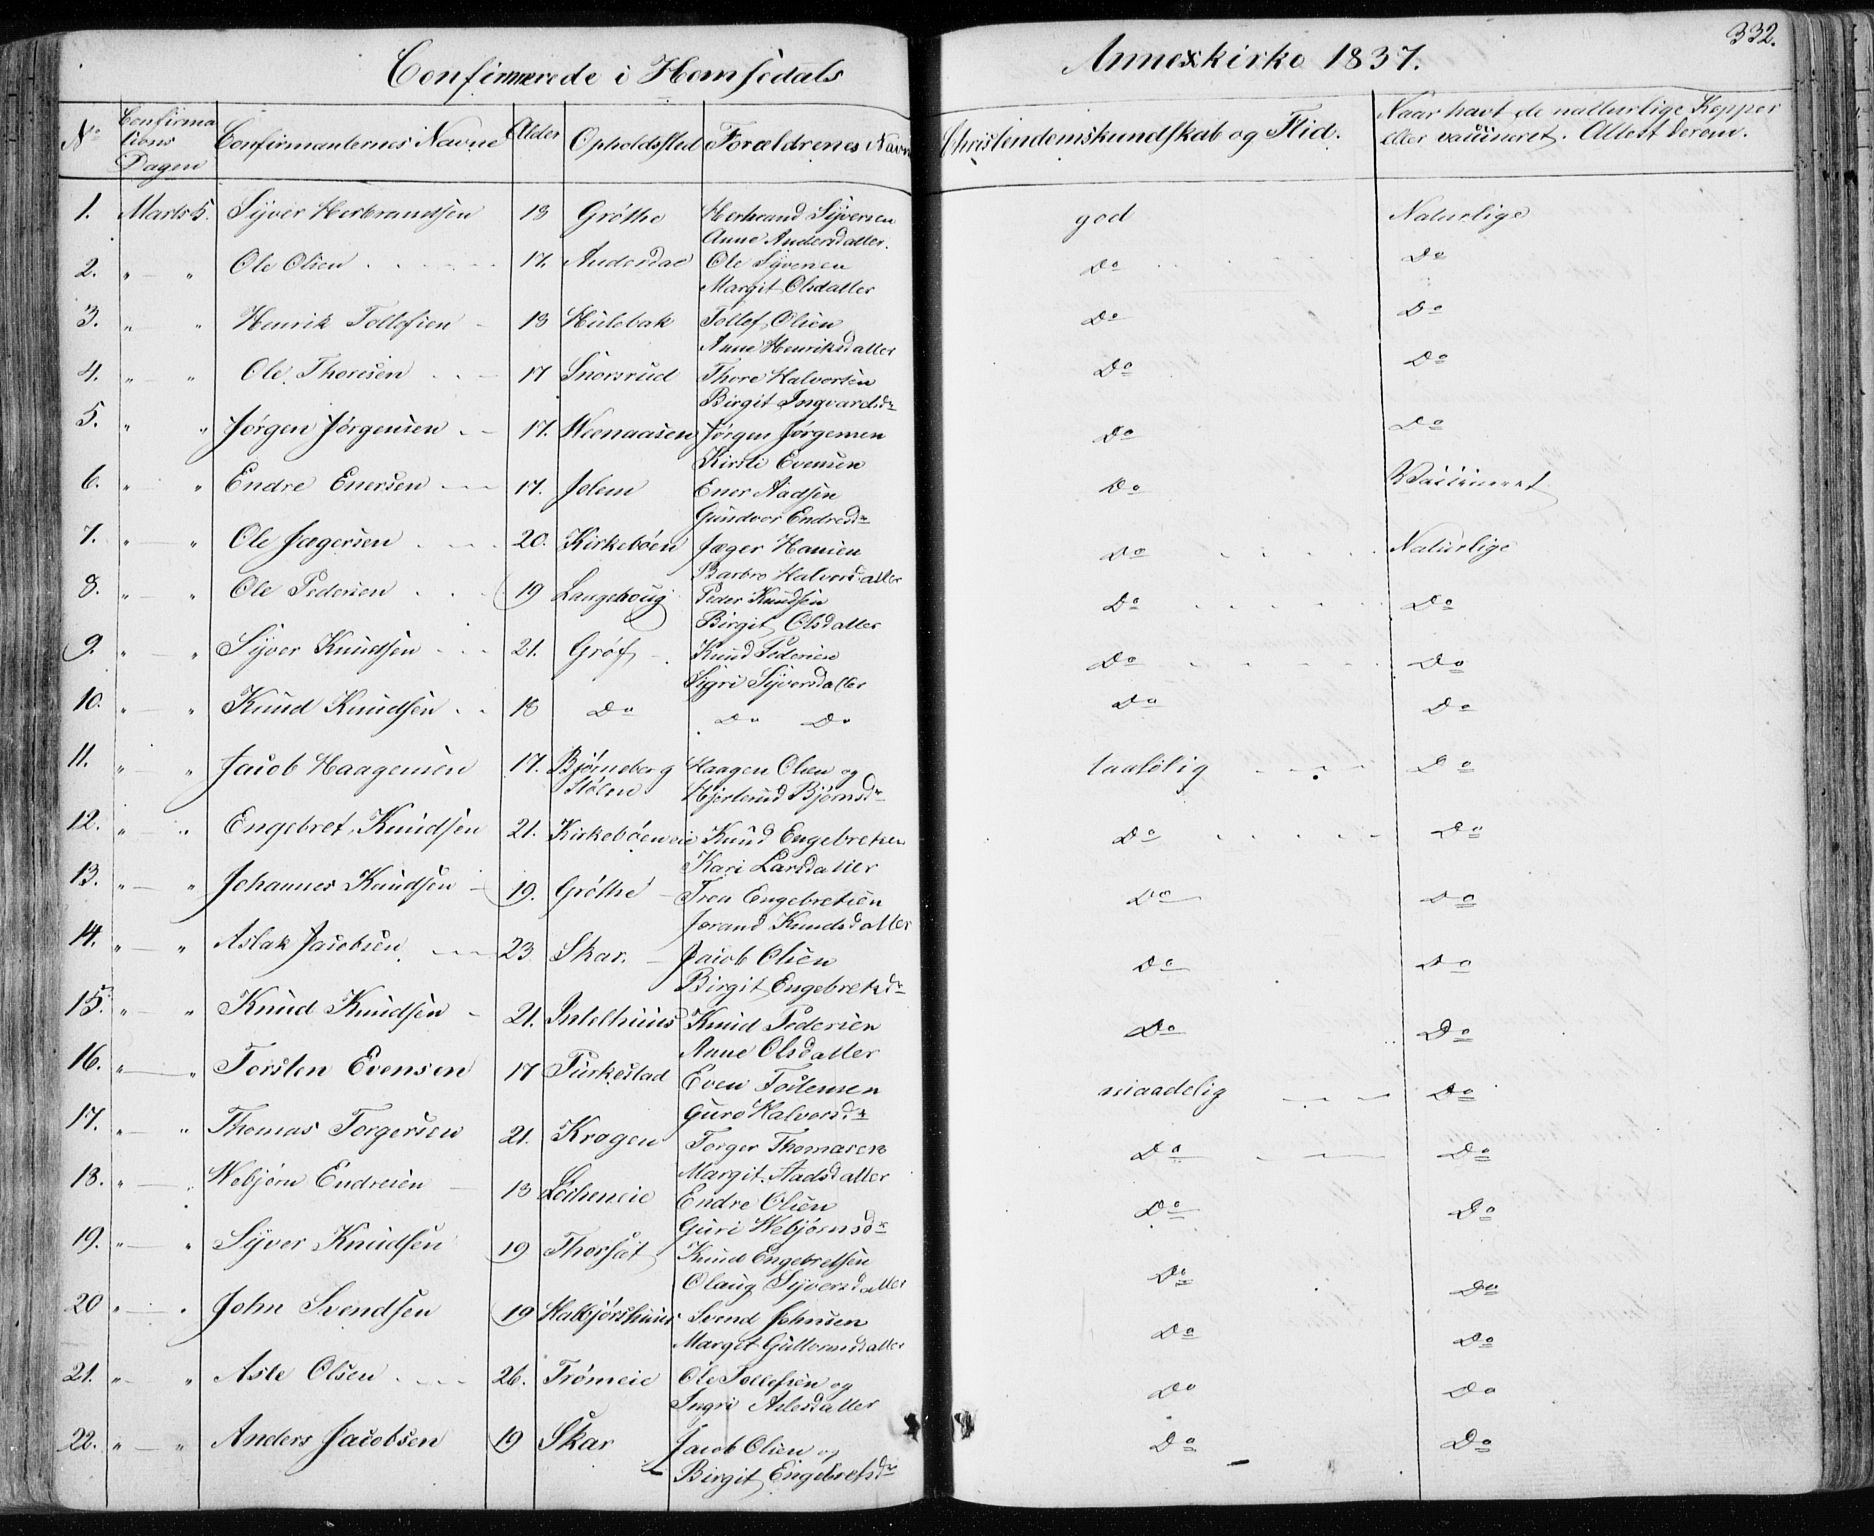 332.
Confirmerede i Hemsedals Annexkirke 1837.
No Confirmations Dagen Confirmanternes Navne Alder Opholdssted Forældrenes Navn Christendomskundskab og Flid. Naar havt de naturlige Kopper eller vaccineret. Attest derom.
1. Marts 5. Syver Herbrandsen 18 Grøthe Herbrand Syversen god Naturlige
Anne Andersdatter.
2. " — " Ole Olsen 17. Anderdal Ole Syversen Do Do
Margit Olsdatter
3. " " Henrik Tollefsen 18 Hulebak Tollef Olsen Do Do
Anne Henriksdatter
4. " — " Ole Thoresen 17 Snorsrud Thore Halvorsen Do Do
Birgit Ingvardsdr
5. " " Jørgen Jørgensen 17. Jørgen Jørgensen Do Do
Kirsti Evensen
6. " " Endre Enersen 17. Jolem Ener Aadsen Do Vaccineret
Gundvor Endresdr
7. " — " Ole Jægersen 20. Kirkebøen Jæger Hansen Do Naturlige
Barbro Halvorsdatter
8. " — " Ole Pedersen 19 Langehoug Peder Knudsen Do Do
Birgit Olsdatter
9. " — " Syver Knudsen 21. Grøf Knud Pedersen Do Do
Sigri Syversdatter
10. " — " Knud Knudsen 18 Do Do Do Do Do
11. " — " Jacob Haagensen 17. Bjørneberg Haagen Olsen og taalelig Do
Stølen Hjerterud Bjørnsdr
12. " — " Engebret Knudsen 21. Kirkebøeneie Knud Engebretsen Do Do
Kari Larsdatter
13. " — " Johannes Knudsen 19. Grøthe Engebretsen Do Do
Jorand Knudsdatter
14. " — " Aslak Jacobsen 23 Skar. Jacob Olsen Do Do
Birgit Engebretsdr
15. " — " Knud Knudsen 21. Intelhuus Knud Pedersen Do Do
Anne Olsdatter
16. " — " Torsten Evensen 17 Turkestad Even Tostensen maadelig Do
Guro Halvorsdr
17. " — " Thomas Torgersen 21. Krogen Torger Thomasen Do Do
Margit Aadsdatter
18. " — " Webjørn Endresen 18 Endre Olsen Do Do
Guri Webjørnsdr
19. " — " Syver Knudsen 19 Thorset Knud Engebretsen Do Do
Olaug Syversdatter
20 " — " John Svendsen 19 Halbjørshuus Svend Johnsen Do Do
Margit Guttormsdatter
21. " — " Asle Olsen 26. Trømeie Ole Tollefsen og Do Do
Ingri Aslesdatter
22. " — " Anders Jacobsen 19 Skar Jacob Olsen og Do Do
Birgit Engebretsdr